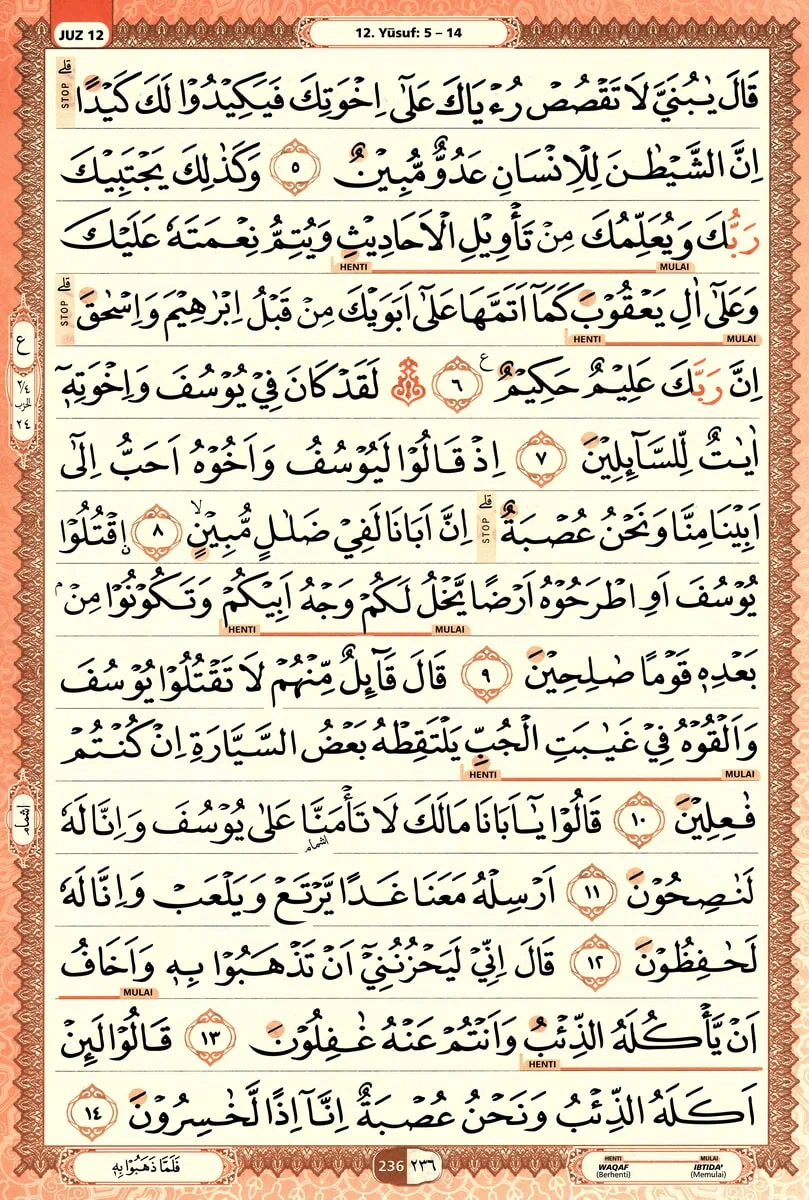 JUZ 12
12. Yūsuf: 5 – 14
قَالَ يٰبُنَيَّ لَا تَقْصُصْ رُءْيَاكَ عَلٰٓى اِخْوَتِكَ فَيَكِيْدُوْا لَكَ كَيْدًا ۗ STOP
اِنَّ الشَّيْطٰنَ لِلْاِنْسَانِ عَدُوٌّ مُّبِيْنٌ ٥ وَكَذٰلِكَ يَجْتَبِيْكَ
رَبُّكَ وَيُعَلِّمُكَ مِنْ تَأْوِيْلِ الْاَحَادِيْثِ وَيُتِمُّ نِعْمَتَهٗ عَلَيْكَ
HENTI MULAI
وَعَلٰٓى اٰلِ يَعْقُوْبَ كَمَآ اَتَمَّهَا عَلٰٓى اَبَوَيْكَ مِنْ قَبْلُ اِبْرٰهِيْمَ وَاِسْحٰقَ ۗ STOP
HENTI MULAI
اِنَّ رَبَّكَ عَلِيْمٌ حَكِيْمٌ ࣖ ٦ ۞ لَقَدْ كَانَ فِيْ يُوْسُفَ وَاِخْوَتِهٖٓ
اٰيٰتٌ لِّلسَّاۤىِٕلِيْنَ ٧ اِذْ قَالُوْا لَيُوْسُفُ وَاَخُوْهُ اَحَبُّ اِلٰٓى
اَبِيْنَا مِنَّا وَنَحْنُ عُصْبَةٌ ۗ STOP اِنَّ اَبَانَا لَفِيْ ضَلٰلٍ مُّبِيْنٍۙ ٨ ࣙاقْتُلُوْا
يُوْسُفَ اَوِ اطْرَحُوْهُ اَرْضًا يَّخْلُ لَكُمْ وَجْهُ اَبِيْكُمْ وَتَكُوْنُوْا مِنْۢ
HENTI MULAI
بَعْدِهٖ قَوْمًا صٰلِحِيْنَ ٩ قَالَ قَاۤىِٕلٌ مِّنْهُمْ لَا تَقْتُلُوْا يُوْسُفَ
وَاَلْقُوْهُ فِيْ غَيٰبَتِ الْجُبِّ يَلْتَقِطْهُ بَعْضُ السَّيَّارَةِ اِنْ كُنْتُمْ
HENTI MULAI
فٰعِلِيْنَ ١٠ قَالُوْا يٰٓاَبَانَا مَالَكَ لَا تَأْمَنَّا عَلٰى يُوْسُفَ وَاِنَّا لَهٗ
اشمام
لَنٰصِحُوْنَ ١١ اَرْسِلْهُ مَعَنَا غَدًا يَّرْتَعْ وَيَلْعَبْ وَاِنَّا لَهٗ
لَحٰفِظُوْنَ ١٢ قَالَ اِنِّيْ لَيَحْزُنُنِيْٓ اَنْ تَذْهَبُوْا بِهٖ وَاَخَافُ
MULAI
اَنْ يَّأْكُلَهُ الذِّئْبُ وَاَنْتُمْ عَنْهُ غٰفِلُوْنَ ١٣ قَالُوْا لَىِٕنْ
HENTI
اَكَلَهُ الذِّئْبُ وَنَحْنُ عُصْبَةٌ اِنَّآ اِذًا لَّخٰسِرُوْنَ ١٤
ع
٢/٤
الحزب
٢٤
اشمام
فَلَمَّا ذَهَبُوْا بِهٖ
236 ٢٣٦
HENTI MULAI
WAQAF IBTIDA'
(Berhenti) (Memulai)